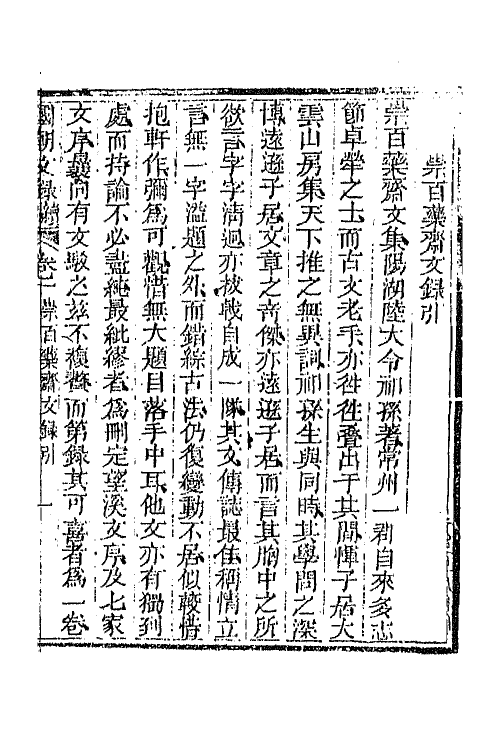 崇百藥齋文録引
崇百藥齋文集陽湖陸大令祁孫著常州一郡自來多志
節卓犖之士而古文老手亦徃徃疊出于其間惲子居大
雲山房集天下推之無異詞祁孫生與同時其學問之深
博遠遜子居文章之奇傑亦遠遜子居而言其胸中之所
欲言字字淸迥亦拔戟自成一隊其文傳誌最佳稱情立
言無一字濫題之外而錯綜古法仍復變動不居似較惜
抱軒作彌爲可觀惜無大題目落手中耳他文亦有獨到
處而持論不必盡純最紕繆者爲刪定望溪文序及七家
文序曩尚有文駮之兹不複贅而第録其可喜者爲一卷
國朝文録續 卷一 崇百藥齋文録引 一